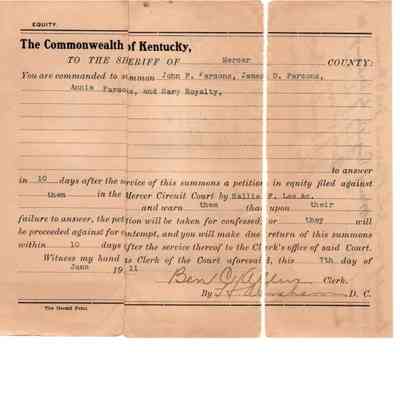 EQUITY.
The Commonwealth of Kentucky,
TO THE SHERIFF OF Mercer COUNTY:
You are commanded to summon John P. Parsons, James D. Parsons,
Annie Parsons, and Mary Royalty,
to answer
in 10 days after the service of this summons a petition in equity filed against
them in the Mercer Circuit Court by Hallie F. Lee &c.
and warn them that upon their
failure to answer, the petition will be taken for confessed, or they will
be proceeded against for contempt, and you will make due return of this summons
within 10 days after the service thereof to the Clerk's office of said Court.
Witness my hand as Clerk of the Court aforesaid, this 7th day of
June 1911
Ben C. Allin Clerk.
By D. C.
The Herald Print